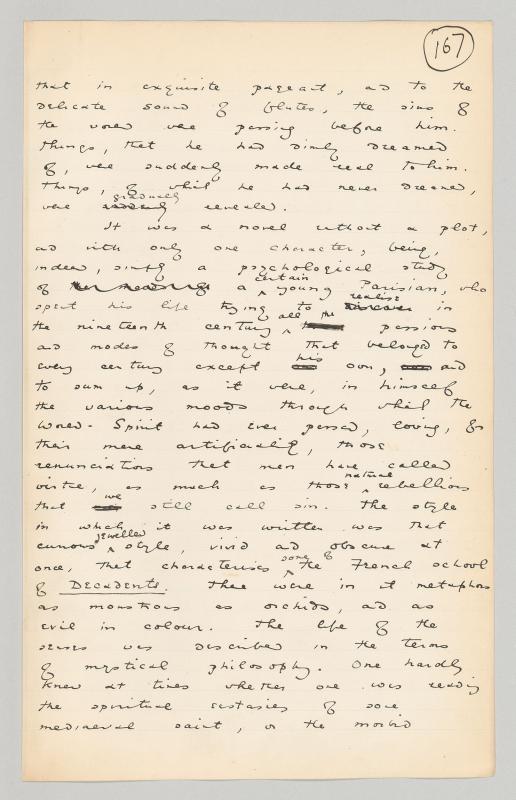 167
that in exquisite pageant, and to the
delicate sound of flutes, the sins of
the world were passing before him.
Things, that he had dimly dreamed
of, were suddenly made real to him.
Things, of which he had never dreamed,
gradually
were revealed.
It was a novel without a plot,
and with only one character, being,
indeed, simply a psychological study
certain
of a young Parisian, who
realise
spent his life trying to in
all the
the nineteenth century passions
and modes of thought that belonged to
his
every century except own, and
to sum up, as it were, in himself
the various moods through which the
World-Spirit had ever passed, loving, for
their mere artificiality, those
renunciations that men have called
natural
virtue, as much as those rebellions
we
that still call sin. The style
in which it was written was that
jewelled
curious style, vivid and obscure at
some of
once, that characterises the French school
of Decadents. There were in it metaphors
as monstrous as orchids, and as
evil in colour. The life of the
senses was described in the terms
of mystical philosophy. One hardly
knew at times whether one was reading
the spiritual ecstasies of some
mediaeval saint, or the morbid